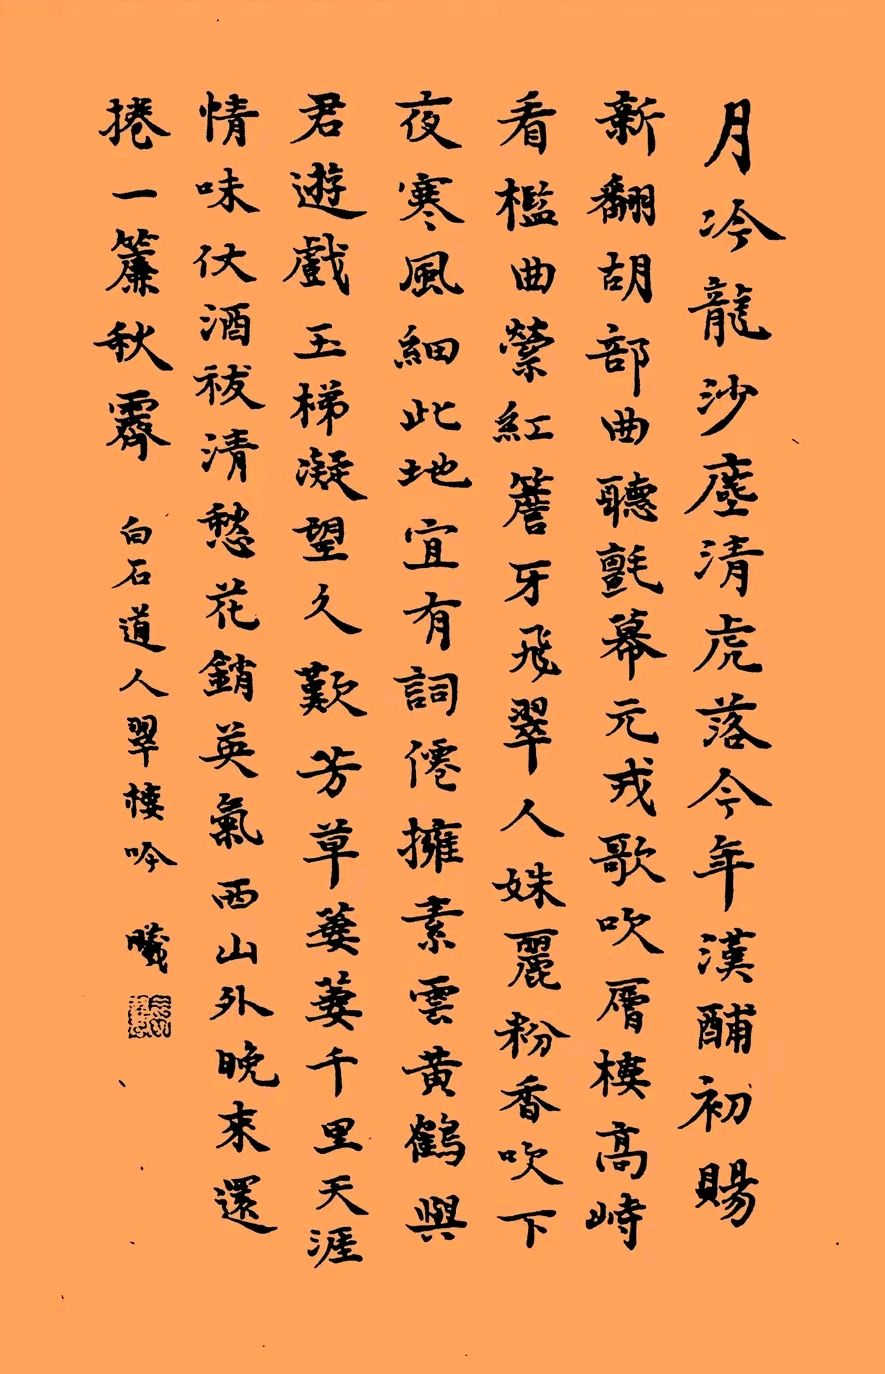 月冷龍沙塵清虎落今年漢酺初賜
新翻胡部曲聽氈幕元戎歌吹層樓高峙
看檻曲縈紅簷牙飛翠人姝麗粉香吹下
夜寒風細此地宜有詞僊擁素雲黃鶴與
君遊戲玉梯凝望久歎芳草萋萋千里天涯
情味仗酒祓清愁花銷英氣西山外晚來還
捲一簾秋霽
白石道人翠樓吟 曦